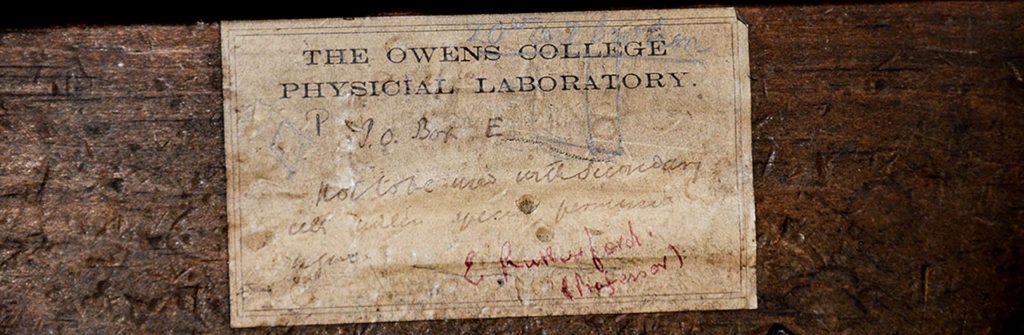 THE OWENS COLLEGE
PHYSICIAL LABORATORY.
P.O. Box E
Not to be used with Secondary
cell unless special permission
is given.
E. Rutherford.
(Professor)